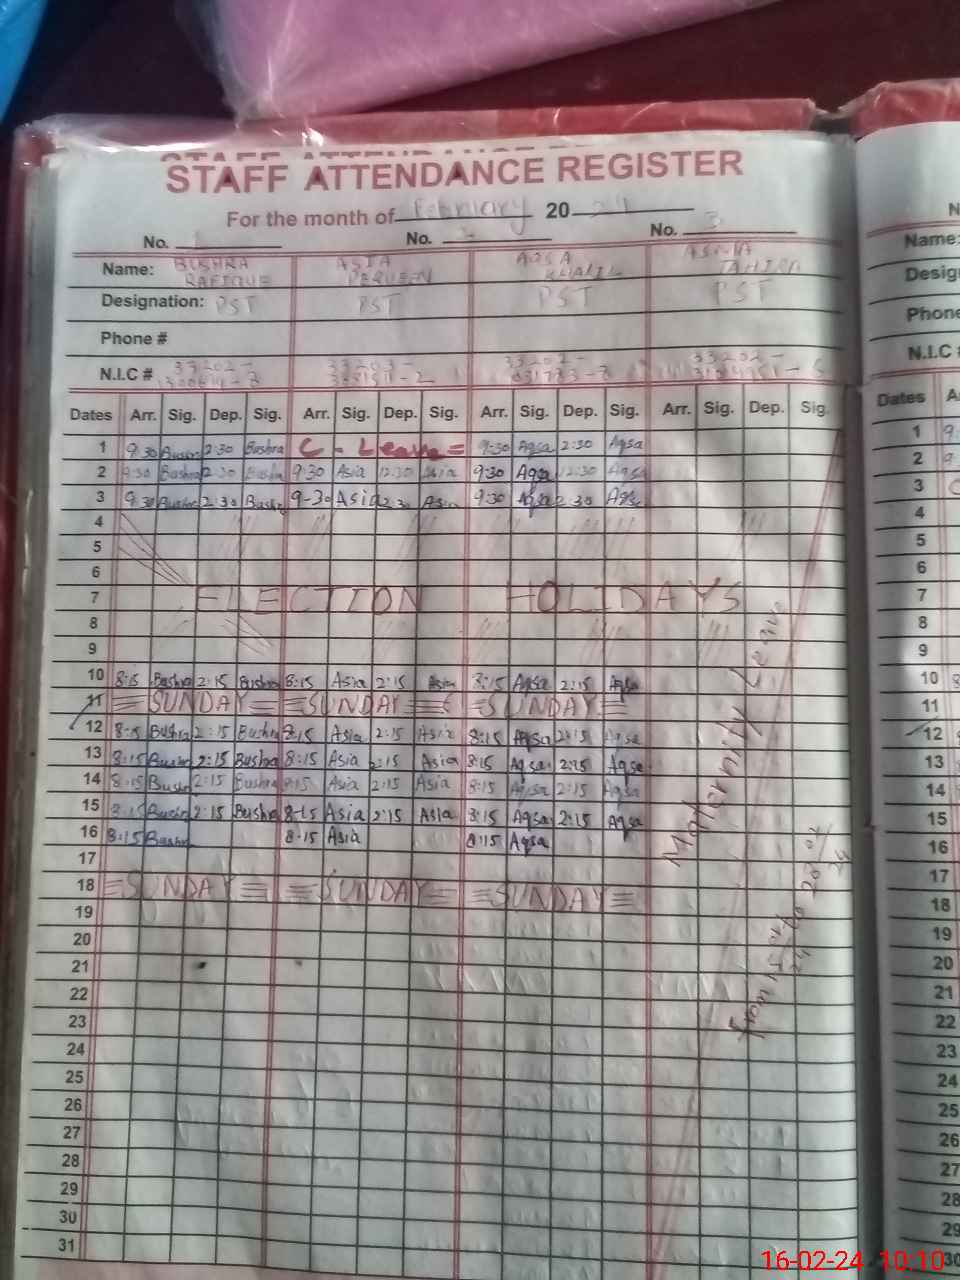 STAFF ATTENDANCE REGISTER
For the month of February 20 24
No. 1 No. 2 No. 3
Name: BUSHRA RAFIQUE ASIA PERVEEN AQSA KHALIL TAHIRA
Designation: PST PST PST PST
Phone #
N.I.C # 33202- 33202- 33202-
Dates Arr. Sig. Dep. Sig. Arr. Sig. Dep. Sig. Arr. Sig. Dep. Sig. Arr. Sig. Dep. Sig.
1 9:30 Bushra 2:30 Bushra C - Leave = 9:30 Aqsa 2:30 Aqsa
2 9:30 Bushra 12:30 Bushra 9:30 Asia 12:30 Asia 9:30 Aqsa 12:30 Aqsa
3 9:30 Bushra 2:30 Bushra 9-30 Asia 2:30 Asia 9:30 Aqsa 2:30 Aqsa
4
5
6
7 ELECTION HOLIDAYS
8
9
10 8:15 Bushra 2:15 Bushra 8:15 Asia 2:15 Asia 8:15 Aqsa 2:15 Aqsa
11 SUNDAY SUNDAY SUNDAY
12 8:15 Bushra 2:15 Bushra 8:15 Asia 2:15 Asia 8:15 Aqsa 2:15 Aqsa
13 8:15 Bushra 2:15 Bushra 8:15 Asia 2:15 Asia 8:15 Aqsa 2:15 Aqsa
14 8:15 Bushra 2:15 Bushra 8:15 Asia 2:15 Asia 8:15 Aqsa 2:15 Aqsa
15 8:15 Bushra 2:15 Bushra 8-15 Asia 2:15 Asia 8:15 Aqsa 2:15 Aqsa
16 8:15 Bushra 8-15 Asia 8:15 Aqsa
17
18 SUNDAY SUNDAY SUNDAY
19
20
21
22
23
24
25
26
27
28
29
30
31
Maternity Leave
from 15 to 28
Name:
Phone
N.I.C #
Dates
1
2
3
4
5
6
7
8
9
10
11
12
13
14
15
16
17
18
19
20
21
22
23
24
25
26
27
28
29
30
16-02-24 10:10